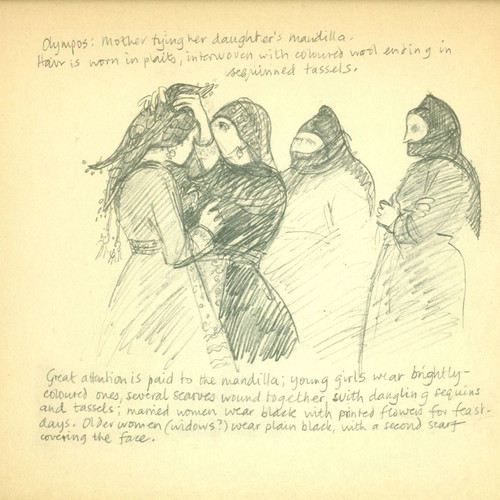 Olympos: Mother tying her daughter's mandilla.
Hair is worn in plaits, interwoven with coloured wool ending in
sequinned tassels.
Great attention is paid to the mandilla; young girls wear brightly-
coloured ones, several scarves wound together, with dangling sequins
and tassels; married women wear black with printed flowers for feast-
days. Older women (widows?) wear plain black, with a second scarf
covering the face.